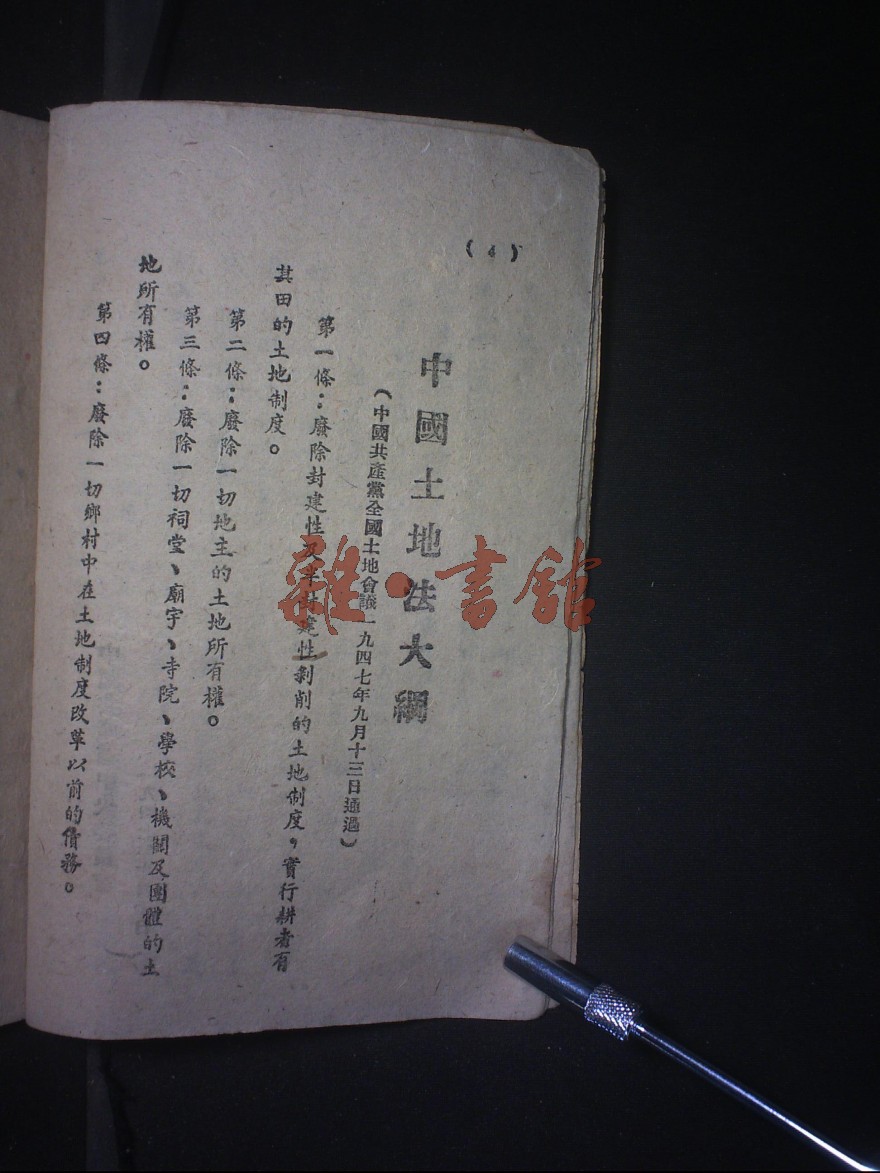 （4）
中國土地法大綱
（中國共產黨全國土地會議一九四七年九月十三日通過）
第一條：廢除封建性及半封建性剝削的土地制度，實行耕者有
其田的土地制度。
第二條：廢除一切地主的土地所有權。
第三條：廢除一切祠堂、廟宇、寺院、學校、機關及團體的土
地所有權。
第四條：廢除一切鄉村中在土地制度改革以前的債務。
雜·書館